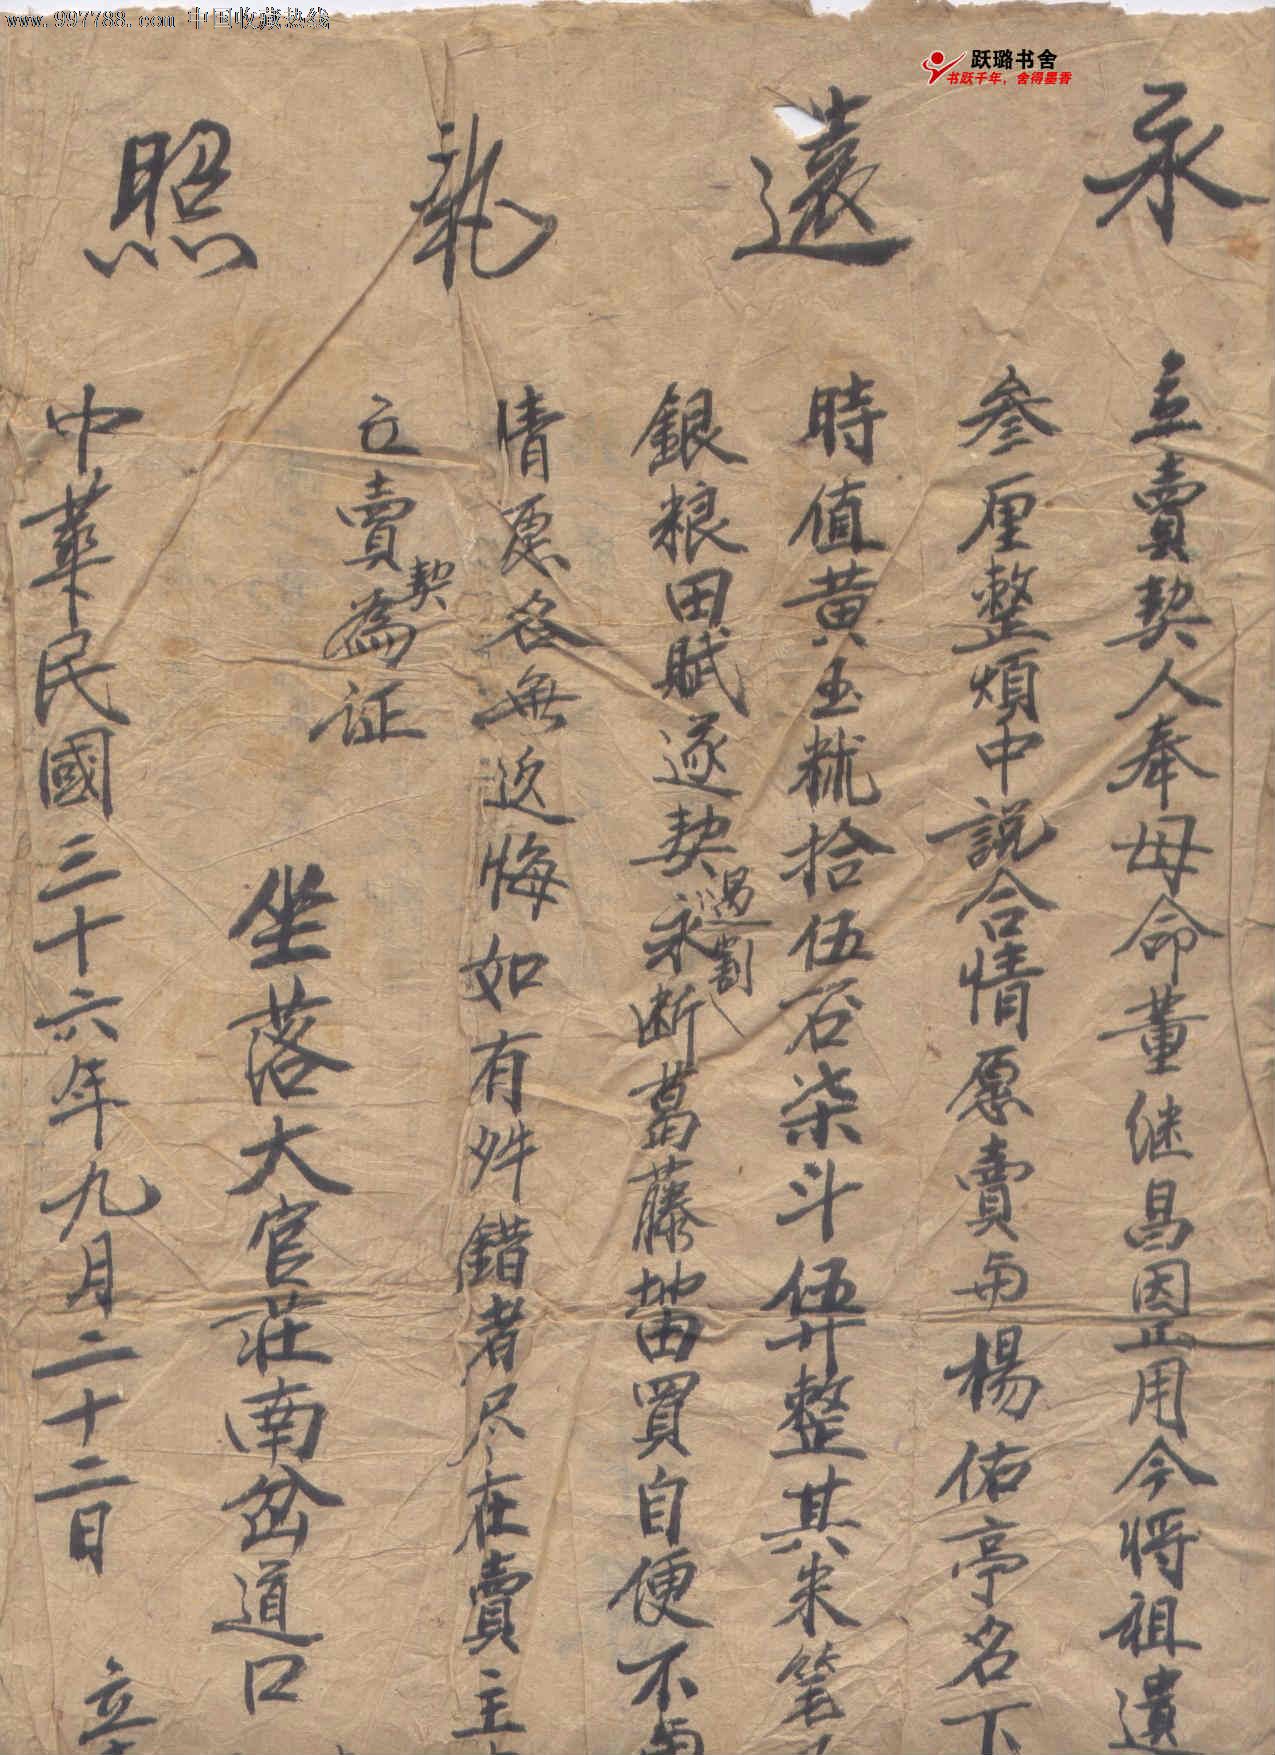 www.997788.com 中国收藏热线
跃璐书舍
书跃千年，舍得墨香
永遠執照
立賣契人奉母命董继昌因正用今将祖遺
叄厘整煩中説合情愿賣与楊佑亭名下
時值黄玉秫拾伍石柒斗伍升整其米筆
銀粮田賦逐契過割永断葛藤
買自便不与
情愿各無返悔如有舛錯者尽在賣主
立賣契為证
坐落大官莊南岔道口
中華民國三十六年九月二十二日
立